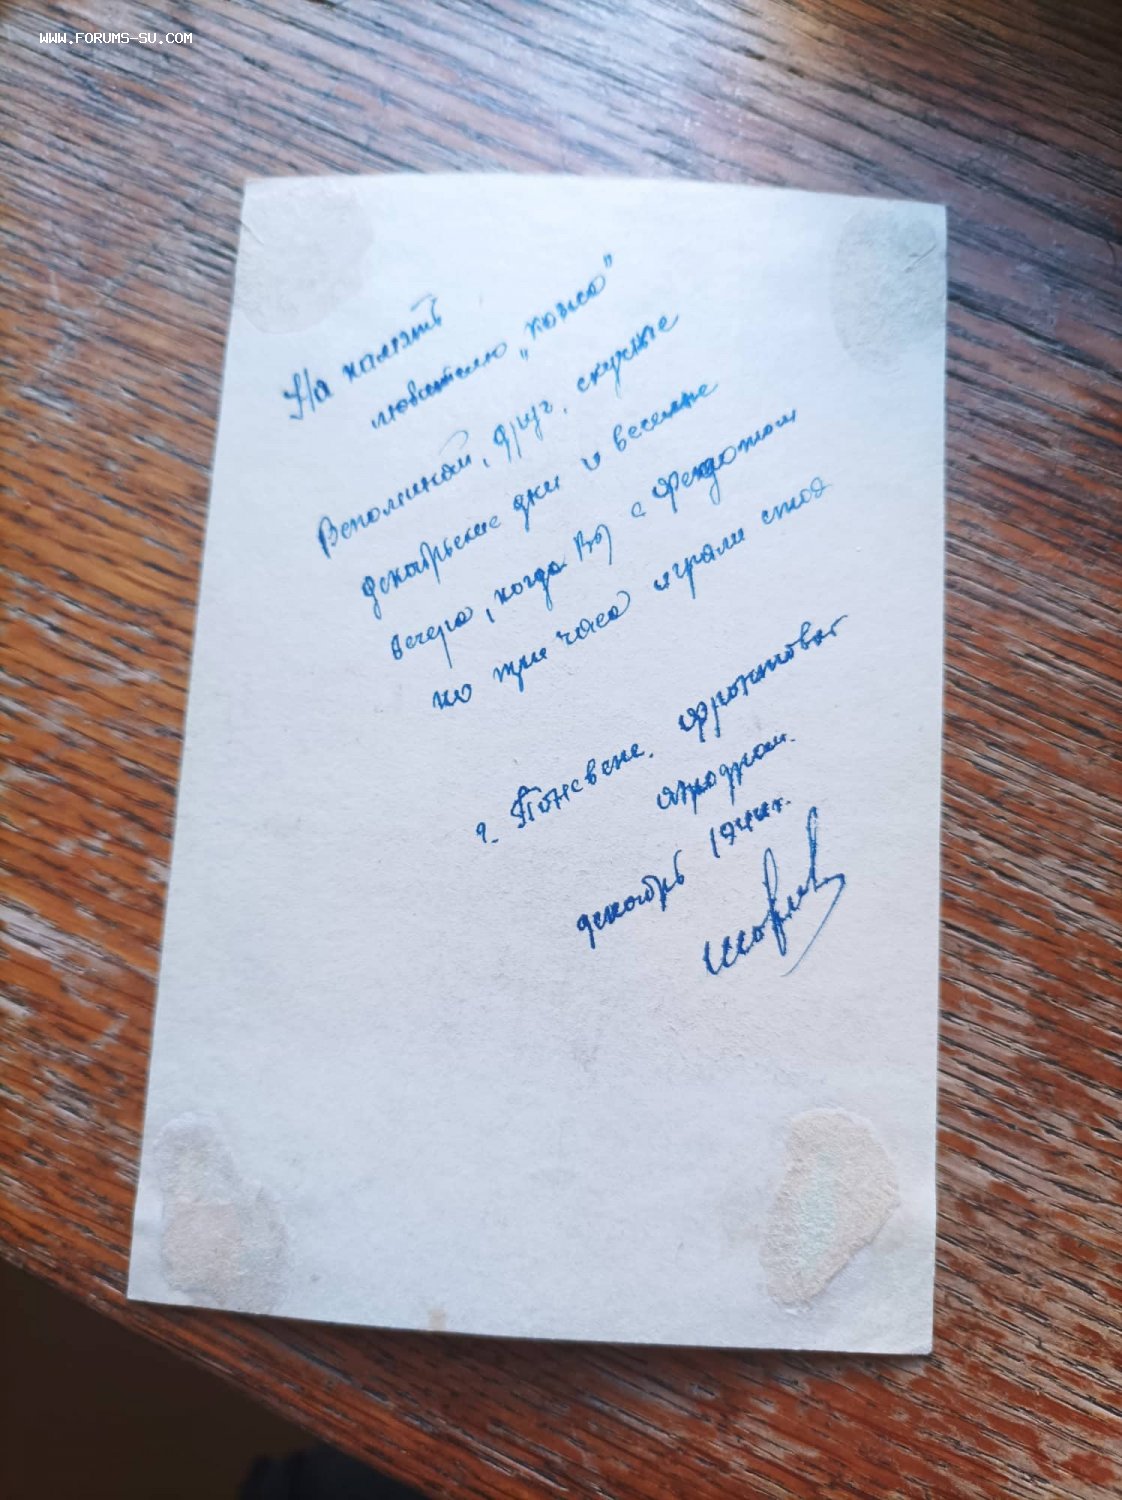 WWW.FORUMS-SU.COM
На память
любителю „козла"
Вспоминай, друг, скучные
декабрьские дни и веселые
вечера, когда Вы с Федотом
по три часа играли стоя
г. Поневеж. Фронтовой
аэродром.
декабрь 1944 г.